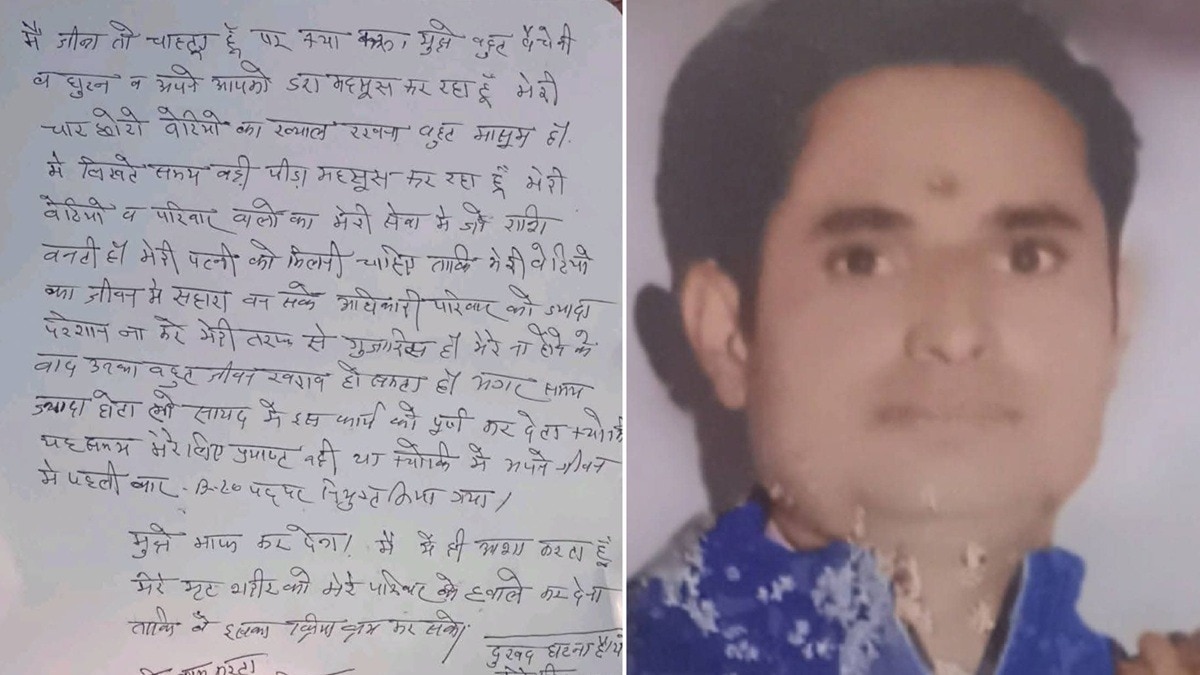 मै जीना तो चाहता हूँ पर क्या करू। मुझे बहुत बैचेनी
व घुटन व अपने आपको डरा महसूस कर रहा हूँ मेरी
चार छोटी बेटियों का ख्याल रखना बहुत मासूम हो.
मे लिखते समय बडी पीडा महसूस कर रहा हूँ मेरी
बेटियो व परिवार वालो का मेरी सेवा मे जो राशि
बनती हो मेरी पत्नी को मिलनी चाहिए ताकि मेरी बेटियो
का जीवन मे सहारा बन सके अधिकारी परिवार को ज्यादा
परेशान ना करे मेरी तरफ से गुजारिस हो मेरे ना होने के
बाद उनका बहुत जीवन खराब हो सकता हो अगर समय
ज्यादा होता तो सायद मैं इस कार्य को पूर्ण कर देता क्योकि
यह समय मेरे लिए नही था क्योकि मै अपने जीवन
मे पहली बार पद पर नियुक्त किया गया।
मुझे माफ कर देना। मै ही आशा करता हूँ
मेरे मृत शरीर को मेरे परिवार के हवाले कर देना
ताकि वे इसका क्रम कर सके।
दुखद घटना है